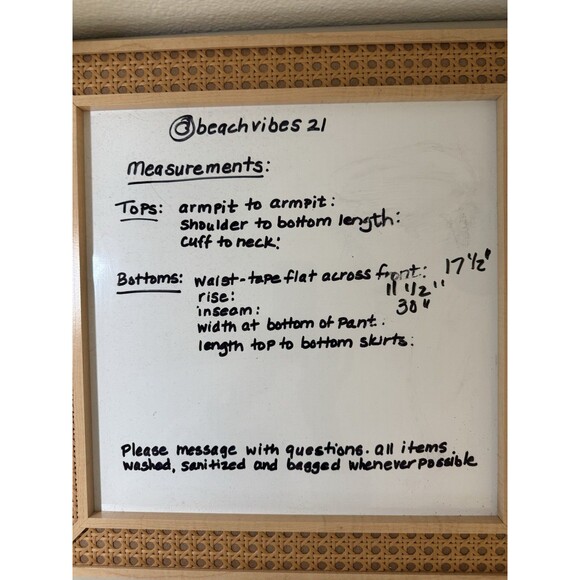 @beachvibes21
measurements:
Tops: armpit to armpit:
shoulder to bottom length:
cuff to neck:
Bottoms: waist-tape flat across front: 17 1/2"
rise: 11 1/2"
inseam: 30"
width at bottom of pant:
length top to bottom skirts:
Please message with questions. all items
washed, sanitized and bagged whenever possible